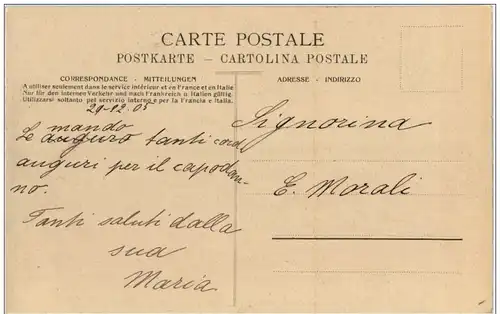 CARTE POSTALE
POSTKARTE - CARTOLINA POSTALE
CORRESPONDANCE - MITTEILUNGEN
A utiliser seulement dans le service intérieur et en France et en Italie
Nur für den internen Verkehr und nach Frankreich u Italien gültig.
Utilizzarsi soltanto pel servizio interno e per la Francia e Italia.
ADRESSE - INDIRIZZO
29-12-05
mando
Le auguro tanti cord
auguri per il capodan-
no.
Tanti saluti dalla
sua
Maria
Signorina
E. Morali